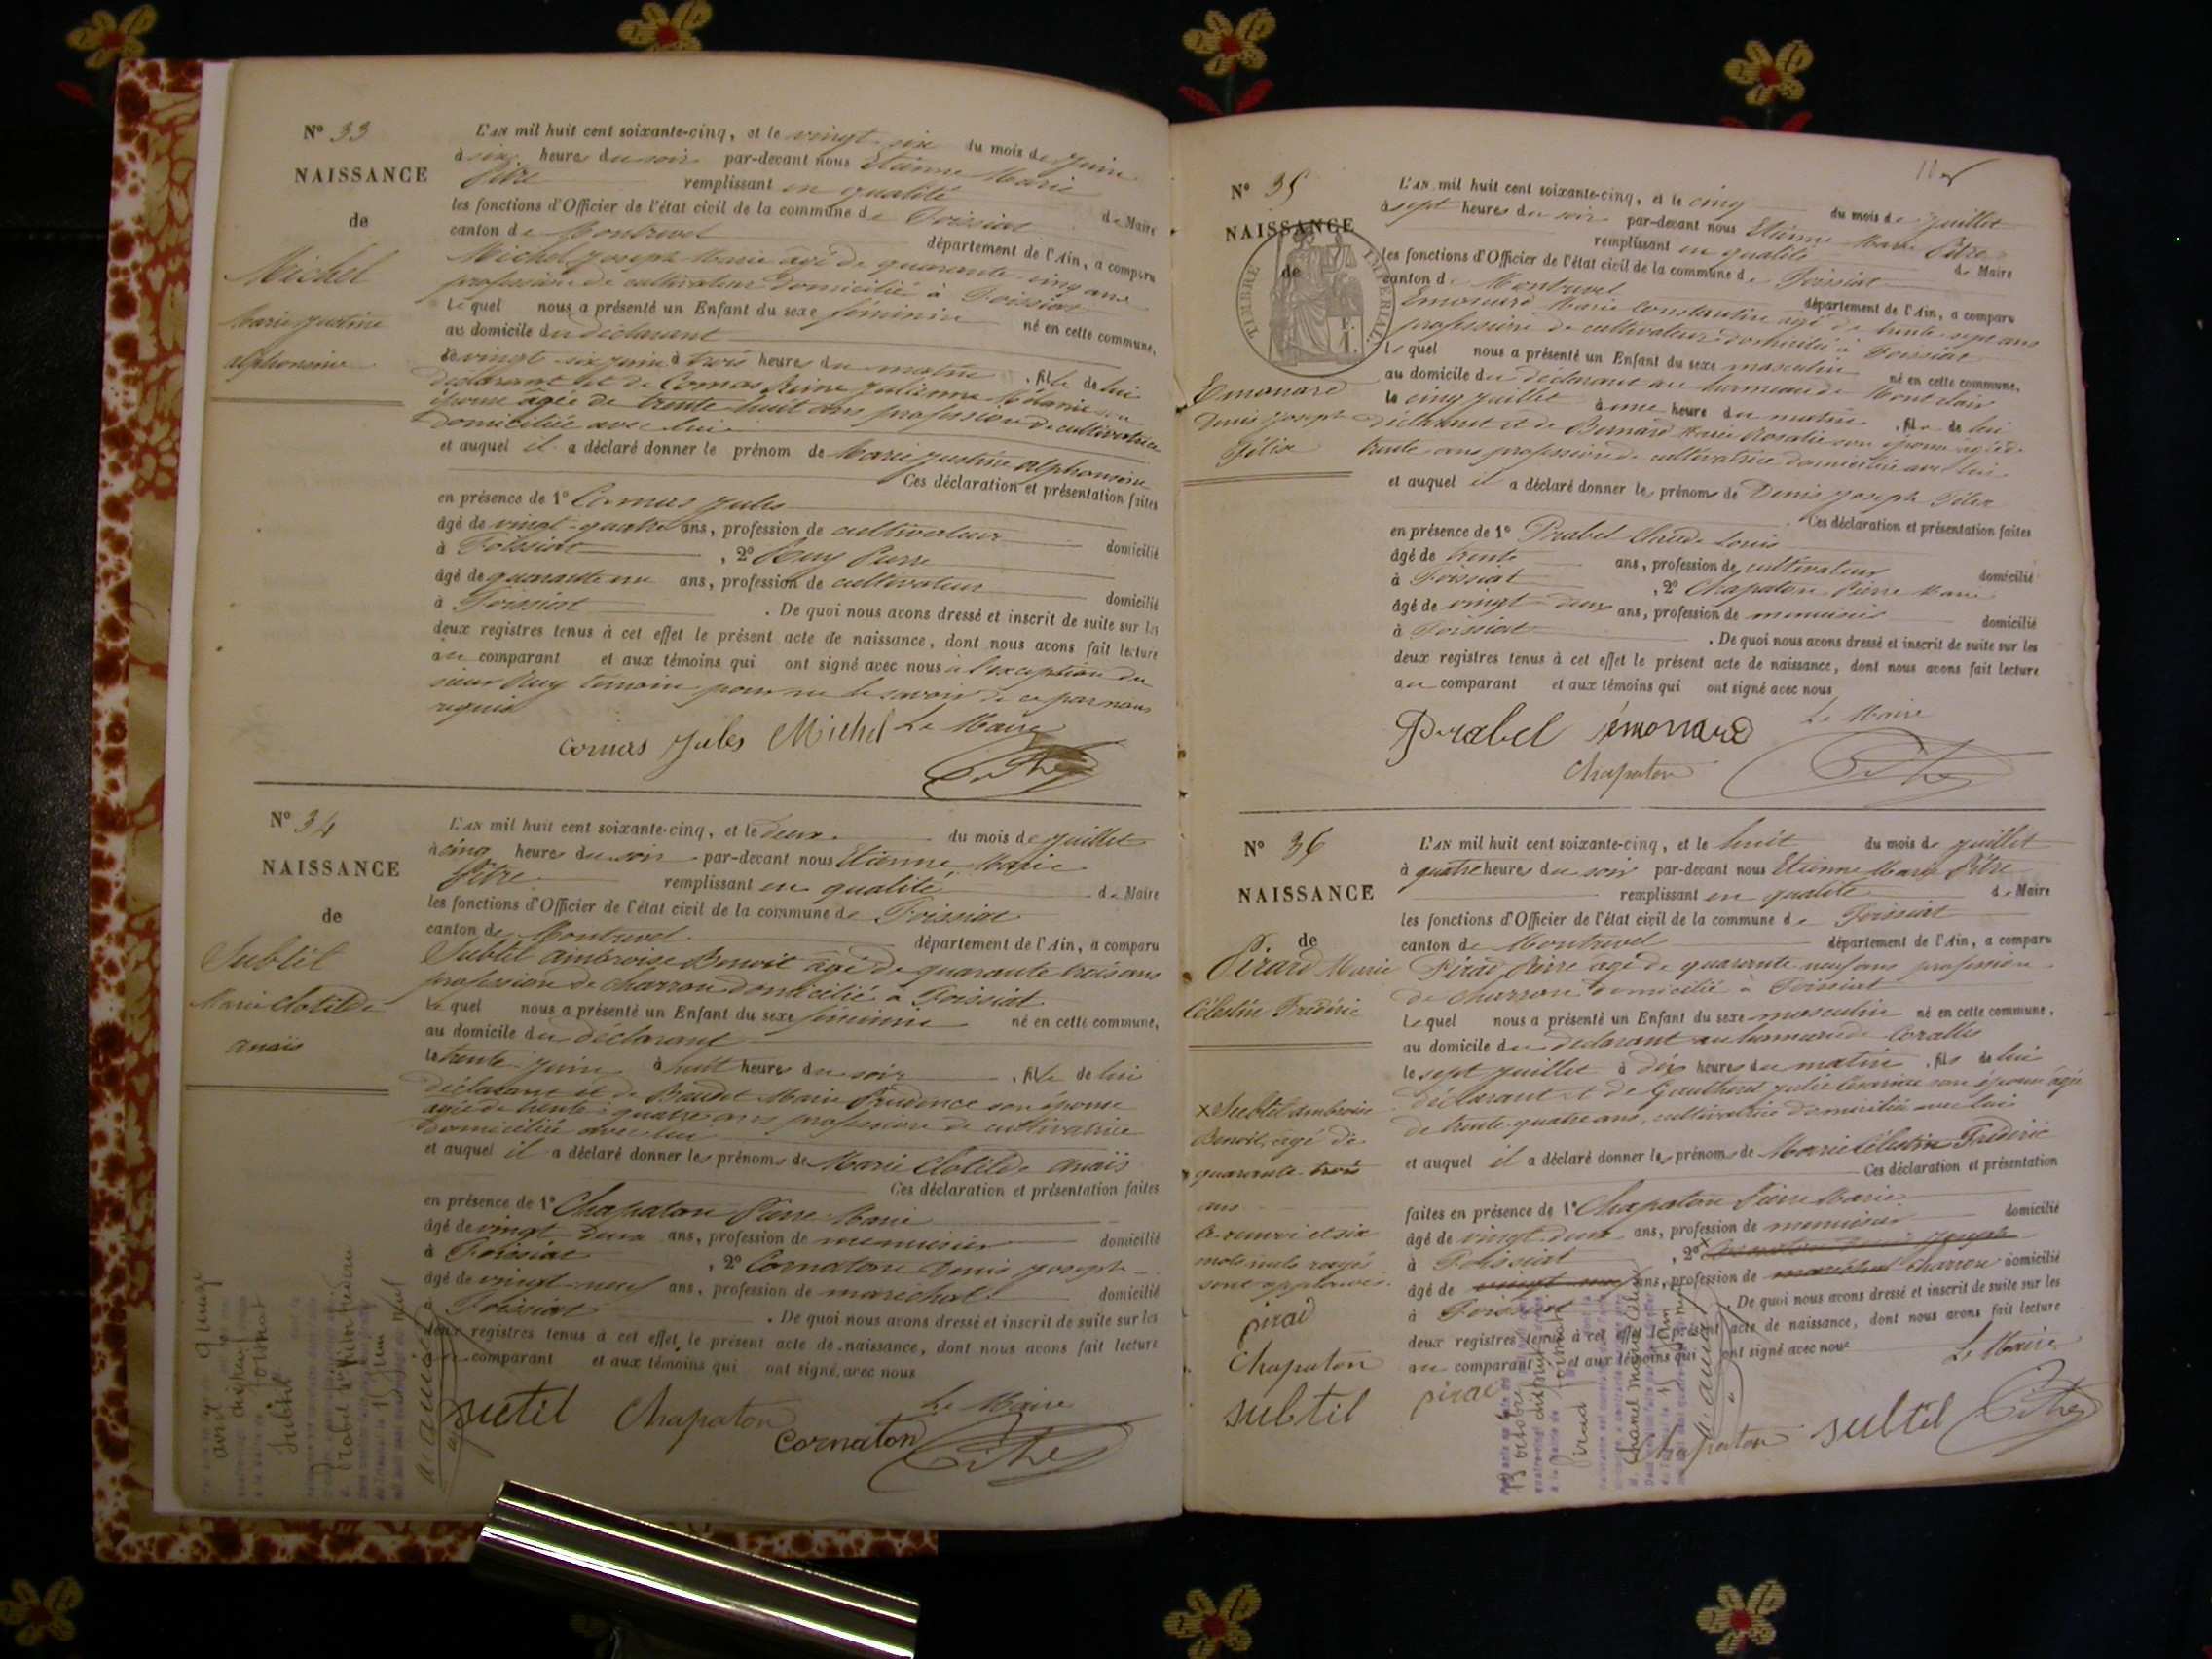 Nº 33
NAISSANCE
de
Michel
Marie Justine
alphonsine
L'AN mil huit cent soixante-cinq, et le vingt six du mois de Juin
à six heures du soir par-devant nous Etienne Marie
Pitre remplissant en qualité de Maire
les fonctions d'Officier de l'état civil de la commune de Foissiat
canton de Montrevel département de l'Ain, a comparu
Michel Joseph Marie âgé de quarante cinq ans
profession de cultivateur domicilié à Foissiat
Lequel nous a présenté un Enfant du sexe féminin né en cette commune,
au domicile du déclarant
le vingt-six juin à trois heures du matin, fille de lui
déclarant et de Comas Reine Julienne Mélanie son
épouse agée de trente huit ans profession de cultivatrice
domiciliée avec lui
et auquel il a déclaré donner le prénom de Marie Justine alphonsine
Ces déclaration et présentation faites
en présence de 1º Comas Jules
âgé de vingt-quatre ans, profession de cultivateur domicilié
à Foissiat, 2º Ruy Pierre
âgé de quarante un ans, profession de cultivateur domicilié
à Foissiat. De quoi nous avons dressé et inscrit de suite sur les
deux registres tenus à cet effet le présent acte de naissance, dont nous avons fait lecture
au comparant et aux témoins qui ont signé avec nous à l'exception du
sieur Ruy témoin pour ne le savoir de ce par nous
requis
Comas Jules Michel Le Maire
Pitre
Nº 34
NAISSANCE
de
Subtil
Marie Clotilde
anaïs
L'AN mil huit cent soixante-cinq, et le deux du mois de juillet
à cinq heures du soir par-devant nous Etienne Marie
Pitre remplissant en qualité de Maire
les fonctions d'Officier de l'état civil de la commune de Foissiat
canton de Montrevel département de l'Ain, a comparu
Subtil ambroise Benoit âgé de quarante trois ans
profession de charron domicilié à Foissiat
Lequel nous a présenté un Enfant du sexe féminin né en cette commune,
au domicile du déclarant
le trente juin à huit heures du soir, fille de lui
déclarant et de Baudet Marie Prudence son épouse
agée de trente-quatre ans profession de cultivatrice
domiciliée avec lui
et auquel il a déclaré donner les prénoms de Marie Clotilde anaïs
Ces déclaration et présentation faites
en présence de 1º Chapaton Pierre Marie
âgé de vingt deux ans, profession de menuisier domicilié
à Foissiat, 2º Cornaton Denis Joseph
âgé de vingt-neuf ans, profession de maréchal domicilié
Foissiat. De quoi nous avons dressé et inscrit de suite sur les
deux registres tenus à cet effet le présent acte de naissance, dont nous avons fait lecture
au comparant et aux témoins qui ont signé avec nous
Le Maire
subtil Chapaton
Cornaton Pitre
Nº 35
NAISSANCE
de
TIMBRE IMPERIAL
Emonard
Denis Joseph
Félix
L'AN mil huit cent soixante-cinq, et le cinq du mois de juillet
à sept heures du soir par-devant nous Etienne Marie Pitre
remplissant en qualité de Maire
les fonctions d'Officier de l'état civil de la commune de Foissiat
canton de Montrevel département de l'Ain, a comparu
Emonard Marie Constantin âgé de trente-sept ans
profession de cultivateur domicilié à Foissiat
Lequel nous a présenté un Enfant du sexe masculin né en cette commune,
au domicile du déclarant au hameau de Montclair
le cinq juillet à une heure du matin, fils de lui
déclarant et de Bernard Marie Rosalie son épouse agée de
trente ans profession de cultivatrice domiciliée avec lui
et auquel il a déclaré donner les prénoms de Denis Joseph Félix
Ces déclaration et présentation faites
en présence de 1º Prabel Claude Louis
âgé de trente ans, profession de cultivateur domicilié
à Foissiat, 2º Chapaton Pierre Marie
âgé de vingt-deux ans, profession de menuisier domicilié
à Foissiat. De quoi nous avons dressé et inscrit de suite sur les
deux registres tenus à cet effet le présent acte de naissance, dont nous avons fait lecture
au comparant et aux témoins qui ont signé avec nous
Le Maire
Prabel émonard
Chapaton Pitre
Nº 36
NAISSANCE
de
Pirad Marie
Célestin Frédéric
x Subtil ambroise
Benoit, agé de
quarante-trois
ans
Ce renvoi et six
mots nuls rayés
sont approuvés.
pirad
Chapaton
subtil
L'AN mil huit cent soixante-cinq, et le huit du mois de juillet
à quatre heures du soir par-devant nous Etienne Marie Pitre
remplissant en qualité de Maire
les fonctions d'Officier de l'état civil de la commune de Foissiat
canton de Montrevel département de l'Ain, a comparu
Pirad Pierre agé de quarante neuf ans profession
de charron domicilié à Foissiat
Lequel nous a présenté un Enfant du sexe masculin né en cette commune,
au domicile du déclarant au hameau de
le sept juillet à dix heures du matin, fils de lui
déclarant et de son épouse agée
de trente-quatre ans, cultivatrice domiciliée avec lui
et auquel il a déclaré donner les prénoms de Marie Célestin Frédéric
Ces déclaration et présentation
faites en présence de 1º Chapaton Pierre Marie domicilié
âgé de vingt deux ans, profession de menuisier
à Foissiat, 2º x Cornaton Denis Joseph
âgé de vingt neuf ans, profession de maréchal charron domicilié
à Foissiat. De quoi nous avons dressé et inscrit de suite sur les
deux registres tenus à cet effet le présent acte de naissance, dont nous avons fait lecture
au comparant et aux témoins qui ont signé avec nous
Le Maire
pirad Chapaton subtil Pitre